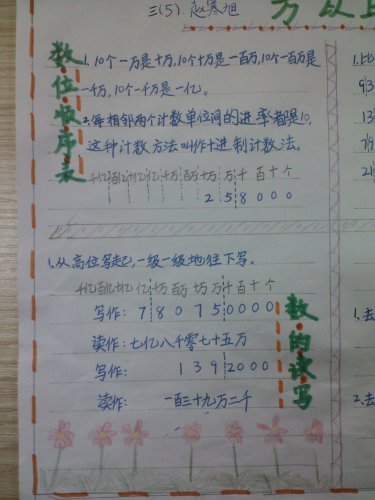 三(5) 赵寒旭
万以上
数位顺序表
1.10个一万是十万,10个十万是一百万,10个一百万是
一千万,10个一千万是一亿。
2.每相邻两个计数单位间的进率都是10,
这种计数方法叫作十进制计数法。
千亿百亿十亿亿千万百万十万万千百十个
2 5 8 0 0 0
1.从高位写起,一级一级地往下写。
千亿百亿十亿亿千万百万十万万千百十个
写作: 7 8 0 7 5 0 0 0 0
读作:七亿八千零七十五万
写作: 1 3 9 2 0 0 0
读作: 一百三十九万二千
数的读写
1.比
93
13
21
1.去
2.去